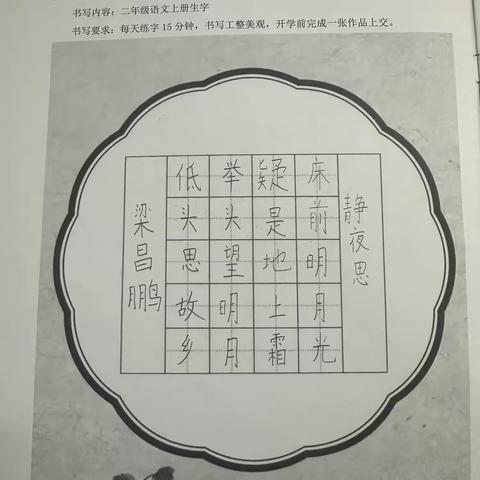 书写内容：二年级语文上册生字
书写要求：每天练字15分钟，书写工整美观，开学前完成一张作品上交。
静夜思
床前明月光
疑是地上霜
举头望明月
低头思故乡
梁昌鹏